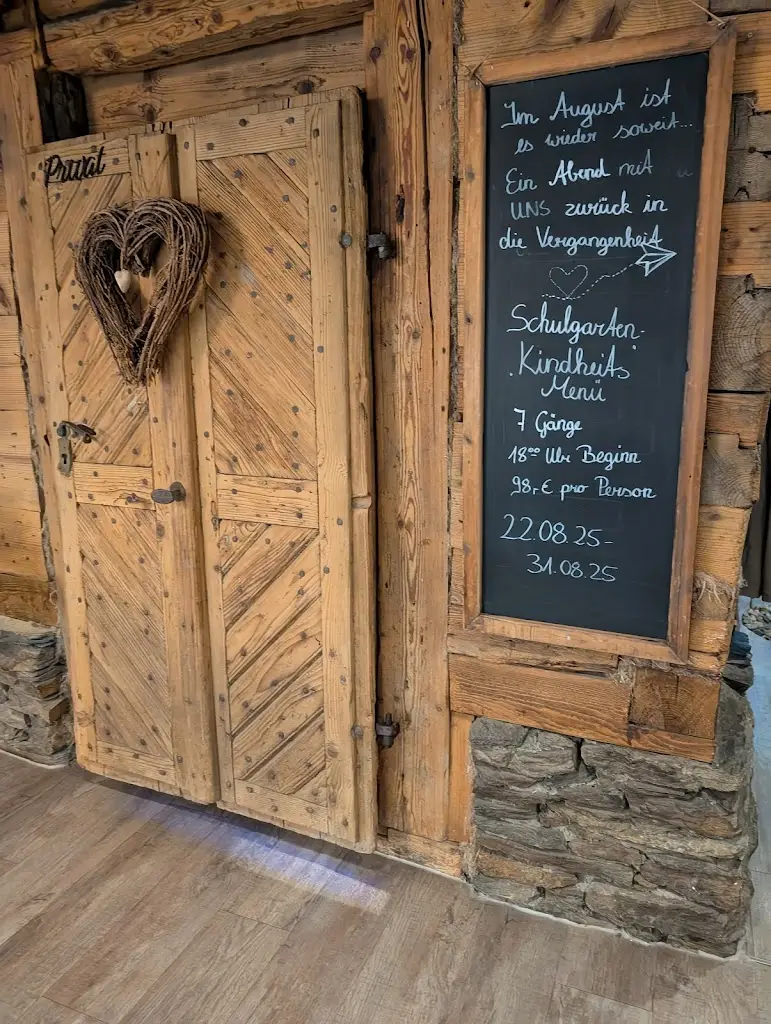 Privat
Im August ist
es wieder soweit...
Ein Abend mit
UNS zurück in
die Vergangenheit
Schulgarten-
"Kindheits"
Menü
7 Gänge
18°° Uhr Beginn
98,-€ pro Person
22.08.25-
31.08.25